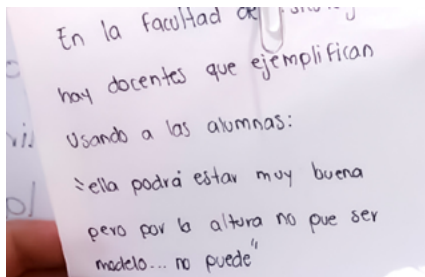 En la facultad de
hay docentes que ejemplifican
usando a las alumnas:
"ella podrá estar muy buena
pero por la altura no pue ser
modelo... no puede"